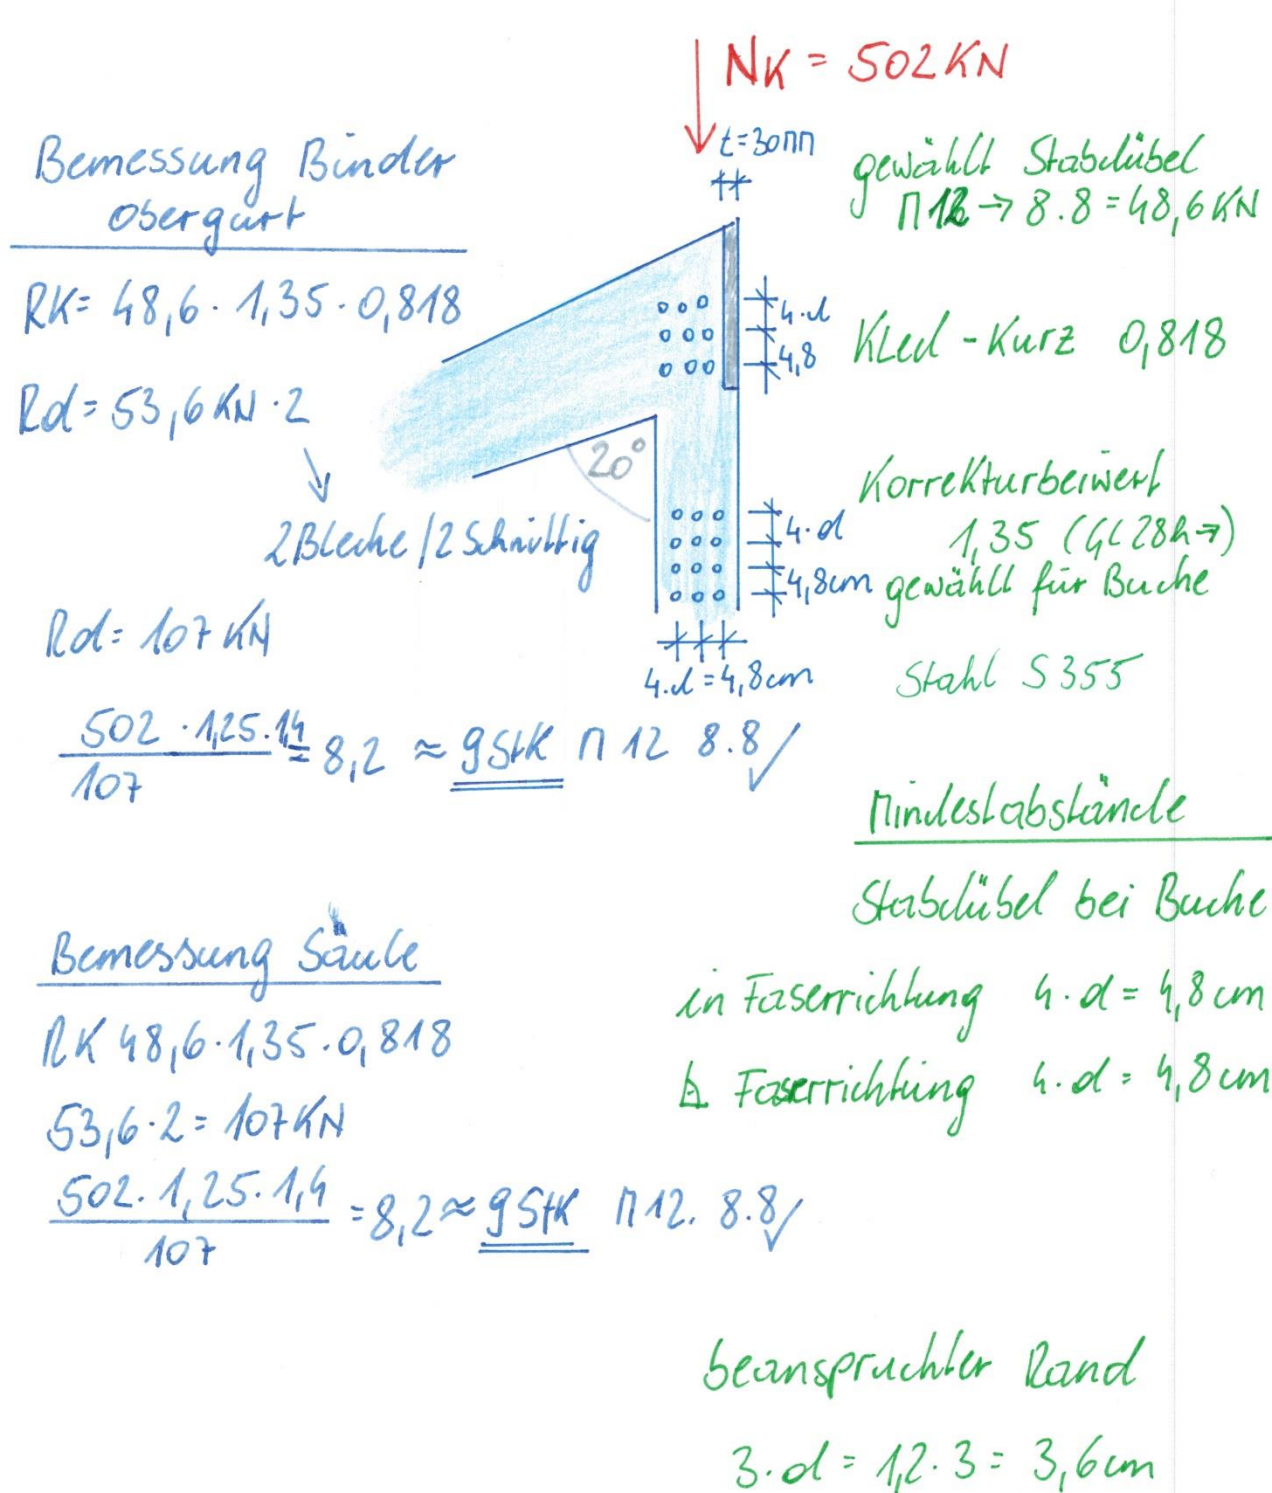 NK = 502KN
t=30mm
Bemessung Binder
Obergurt
RK= 48,6 · 1,35 · 0,818
Rd= 53,6 KN · 2
2 Bleche / 2 Schnittig
Rd= 107 KN
502 · 1,25 · 1,4
107
= 8,2 ≈ 9 Stk M 12 8.8 ✓
Bemessung Säule
RK 48,6 · 1,35 · 0,818
53,6 · 2 = 107 KN
502 · 1,25 · 1,4
107
= 8,2 ≈ 9 Stk M 12. 8.8 ✓
4·d
4,8
20°
4·d
4,8cm
4·d = 4,8cm
gewählt Stabdübel
M 12 → 8.8 = 48,6 KN
Kled - Kurz 0,818
Korrekturbeiwert
1,35 (GL 28h →)
gewählt für Buche
Stahl S 355
Mindestabstände
Stabdübel bei Buche
in Faserrichtung 4·d = 4,8 cm
Faserrichtung 4·d = 4,8 cm
beanspruchter Rand
3·d = 1,2 · 3 = 3,6cm